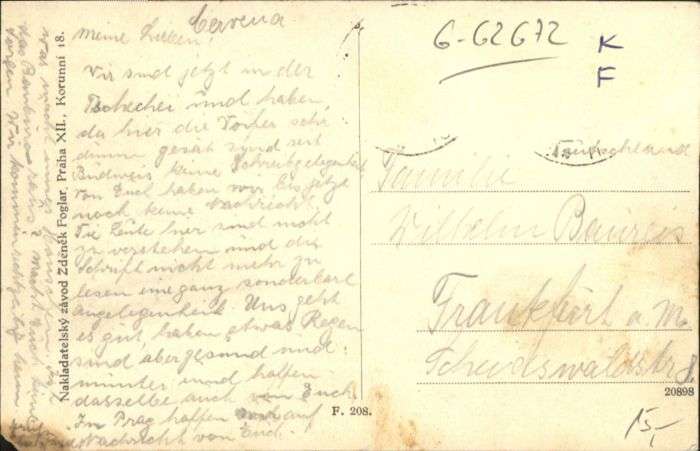 Cervena
Meine Lieben!
Wir sind jetzt in der
Tschechei und haben,
da hier die Dörfer sehr
dünn gesät sind seit
Budweis keine Schreibgelegenheit
Von Euch haben wir bis jetzt
noch keine Nachricht.
Die Leute hier sind nicht
zu verstehen und die
Schrift nicht mehr zu
lesen eine ganz sonderbare
Angelegenheit. Uns geht
es gut haben etwas Regen
sind aber gesund und
munter und hoffen
dasselbe auch von Euch.
In Prag hoffen wir auf
Nachricht von Euch.
Was macht unser
das Bankkonto
Sorgen Wir kommen
Nakladatelský závod Zdeněk Foglar, Praha XII., Korunní 18.
F. 208.
6-62672
K
F
Deutschland
Familie
Wilhelm Baureis
Frankfurt a. M.
20898
15,-